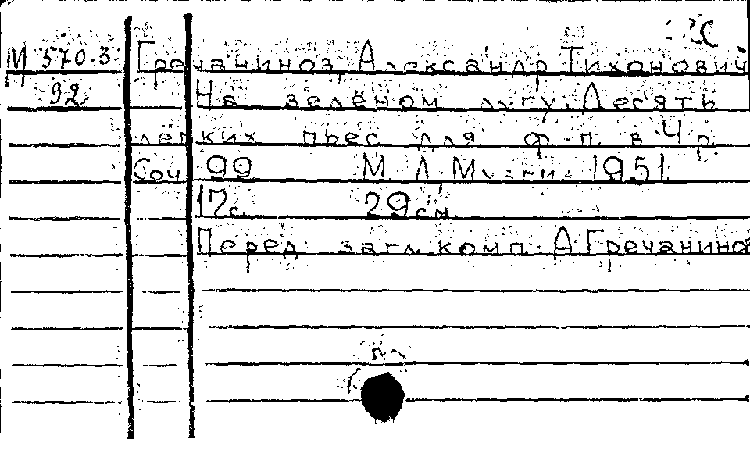 М 570.3 Гречанинов, Александр Тихонович
92 На зелёном лугу. Десять
лёгких пьес для ф-п. в 4 р.
Соч. 99 М. Л. Музгиз 1951
17с. 29см.
Перед загл. комп. А. Гречанинов